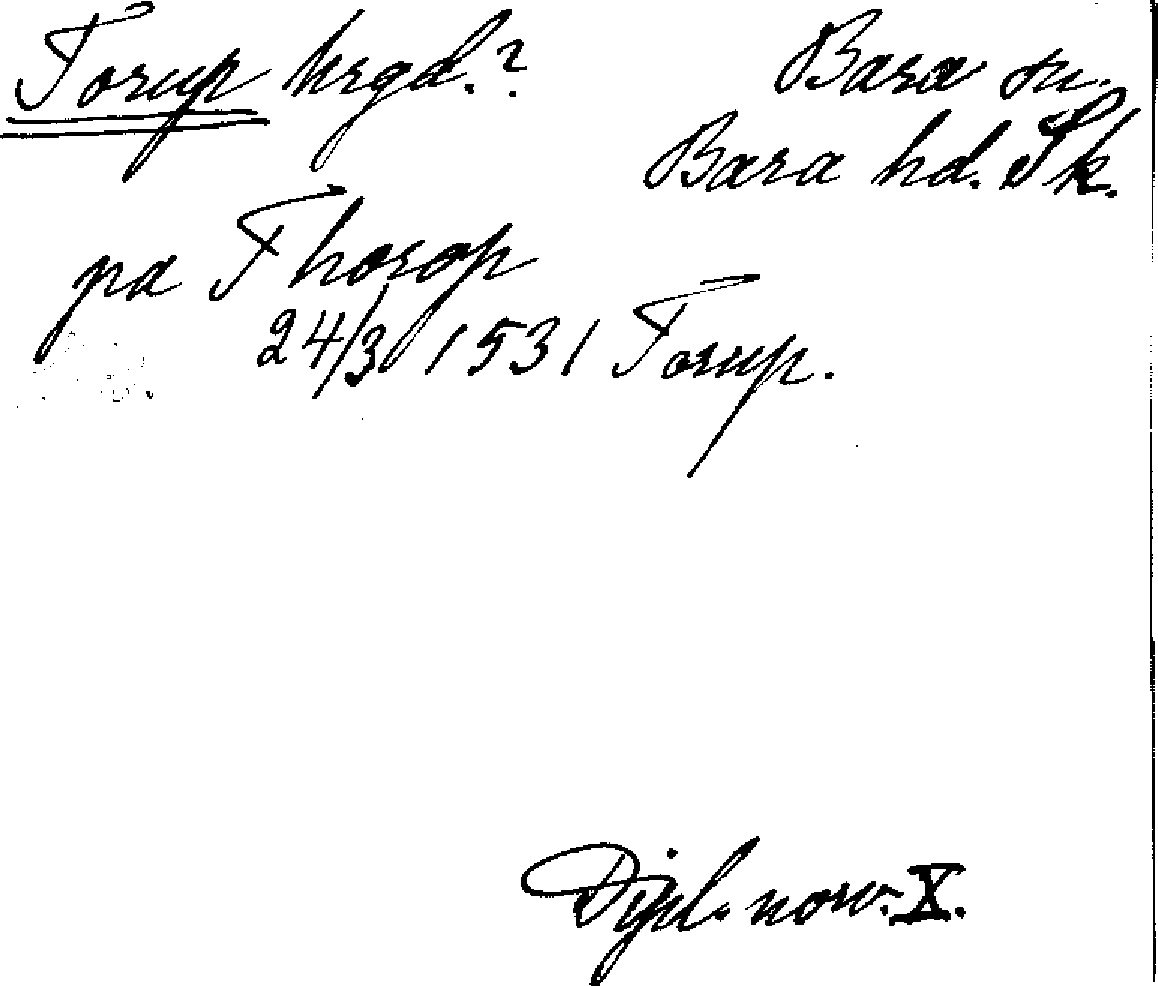 Torup hrgd.? Bara sn.
Bara hd. Sk.
pa Thorop
24/3 1531 Torup.
Dipl. norv. X.